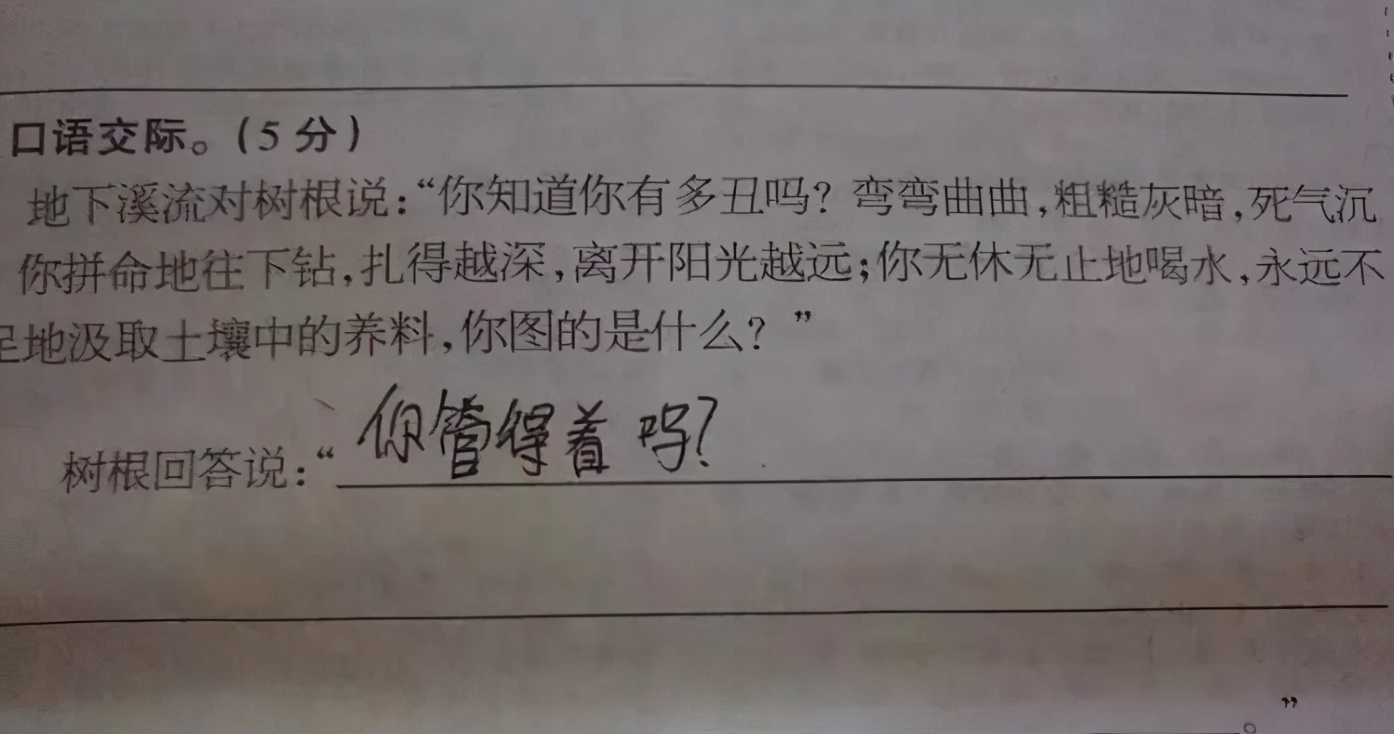 口语交际。(5分)
地下溪流对树根说:“你知道你有多丑吗?弯弯曲曲,粗糙灰暗,死气沉
你拼命地往下钻,扎得越深,离开阳光越远;你无休无止地喝水,永远不
足地汲取土壤中的养料,你图的是什么?”
树根回答说:“你管得着吗?
”
。